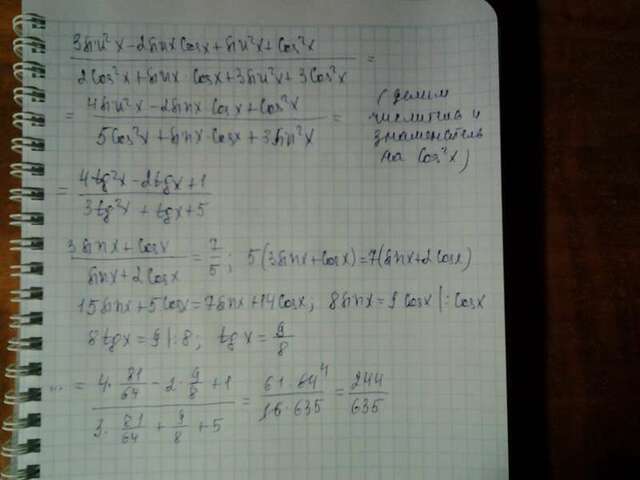 3sin²x-2sinxcosx+sin²x+cos²x
=
2cos²x+sinx·cosx+3sin²x+3cos²x
= 4sin²x-2sinx cosx+cos²x =
5cos²x+sinx·cosx+3sin²x
(делим
числитель и
знаменатель
на cos²x)
= 4tg²x-2tgx+1
3tg²x+tgx+5
3sinx+cosx = 7 ; 5(3sinx+cosx)=7(sinx+2cosx)
sinx+2cosx 5
15sinx+5cosx=7sinx+14cosx; 8sinx=9cosx|:cosx
8tgx=9|:8; tgx=9/8
... = 4·81/64-2·9/8+1 = 61·64⁴ = 244
3·81/64+9/8+5 16·635 635